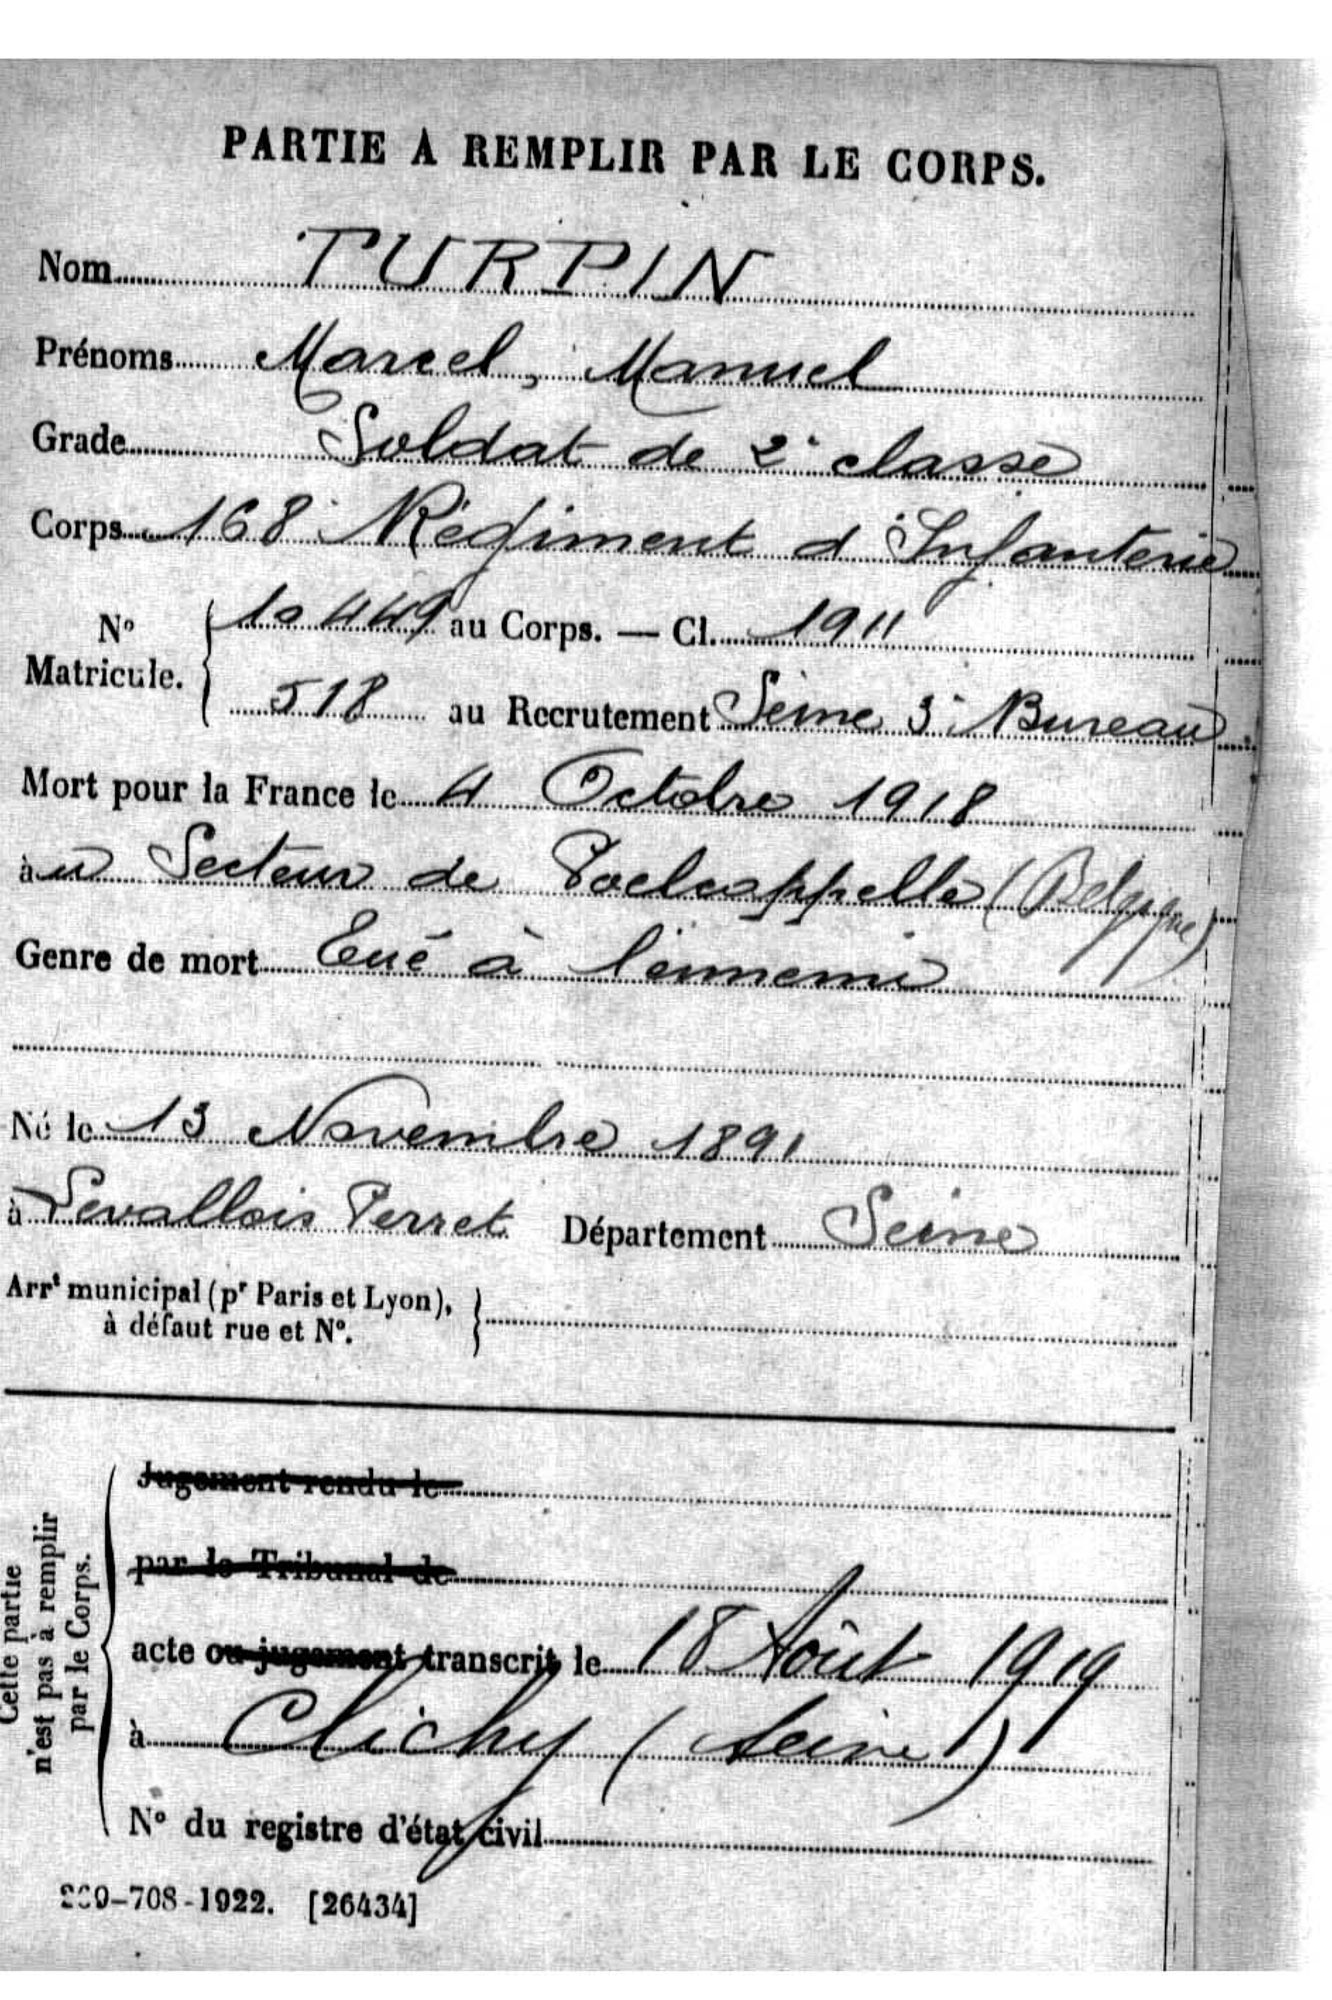 PARTIE A REMPLIR PAR LE CORPS.
Nom TURPIN
Prénoms Marcel, Manuel
Grade Soldat de 2e classe
Corps 168e Régiment d'Infanterie
No Matricule. 10449 au Corps. — Cl. 1911
518 au Recrutement Seine 3e Bureau
Mort pour la France le 4 Octobre 1918
àu Secteur de Poelcappelle (Belgique)
Genre de mort Tué à l'ennemi
Né le 13 Novembre 1891
à Levallois Perret Département Seine
Arrt municipal (pr Paris et Lyon),
à défaut rue et No.
Cette partie
n'est pas à remplir
par le Corps.
Jugement rendu le
par le Tribunal de
acte ou jugement transcrit le 18 Août 1919
à Clichy (Seine)
No du registre d'état civil
-708-1922. [26434]